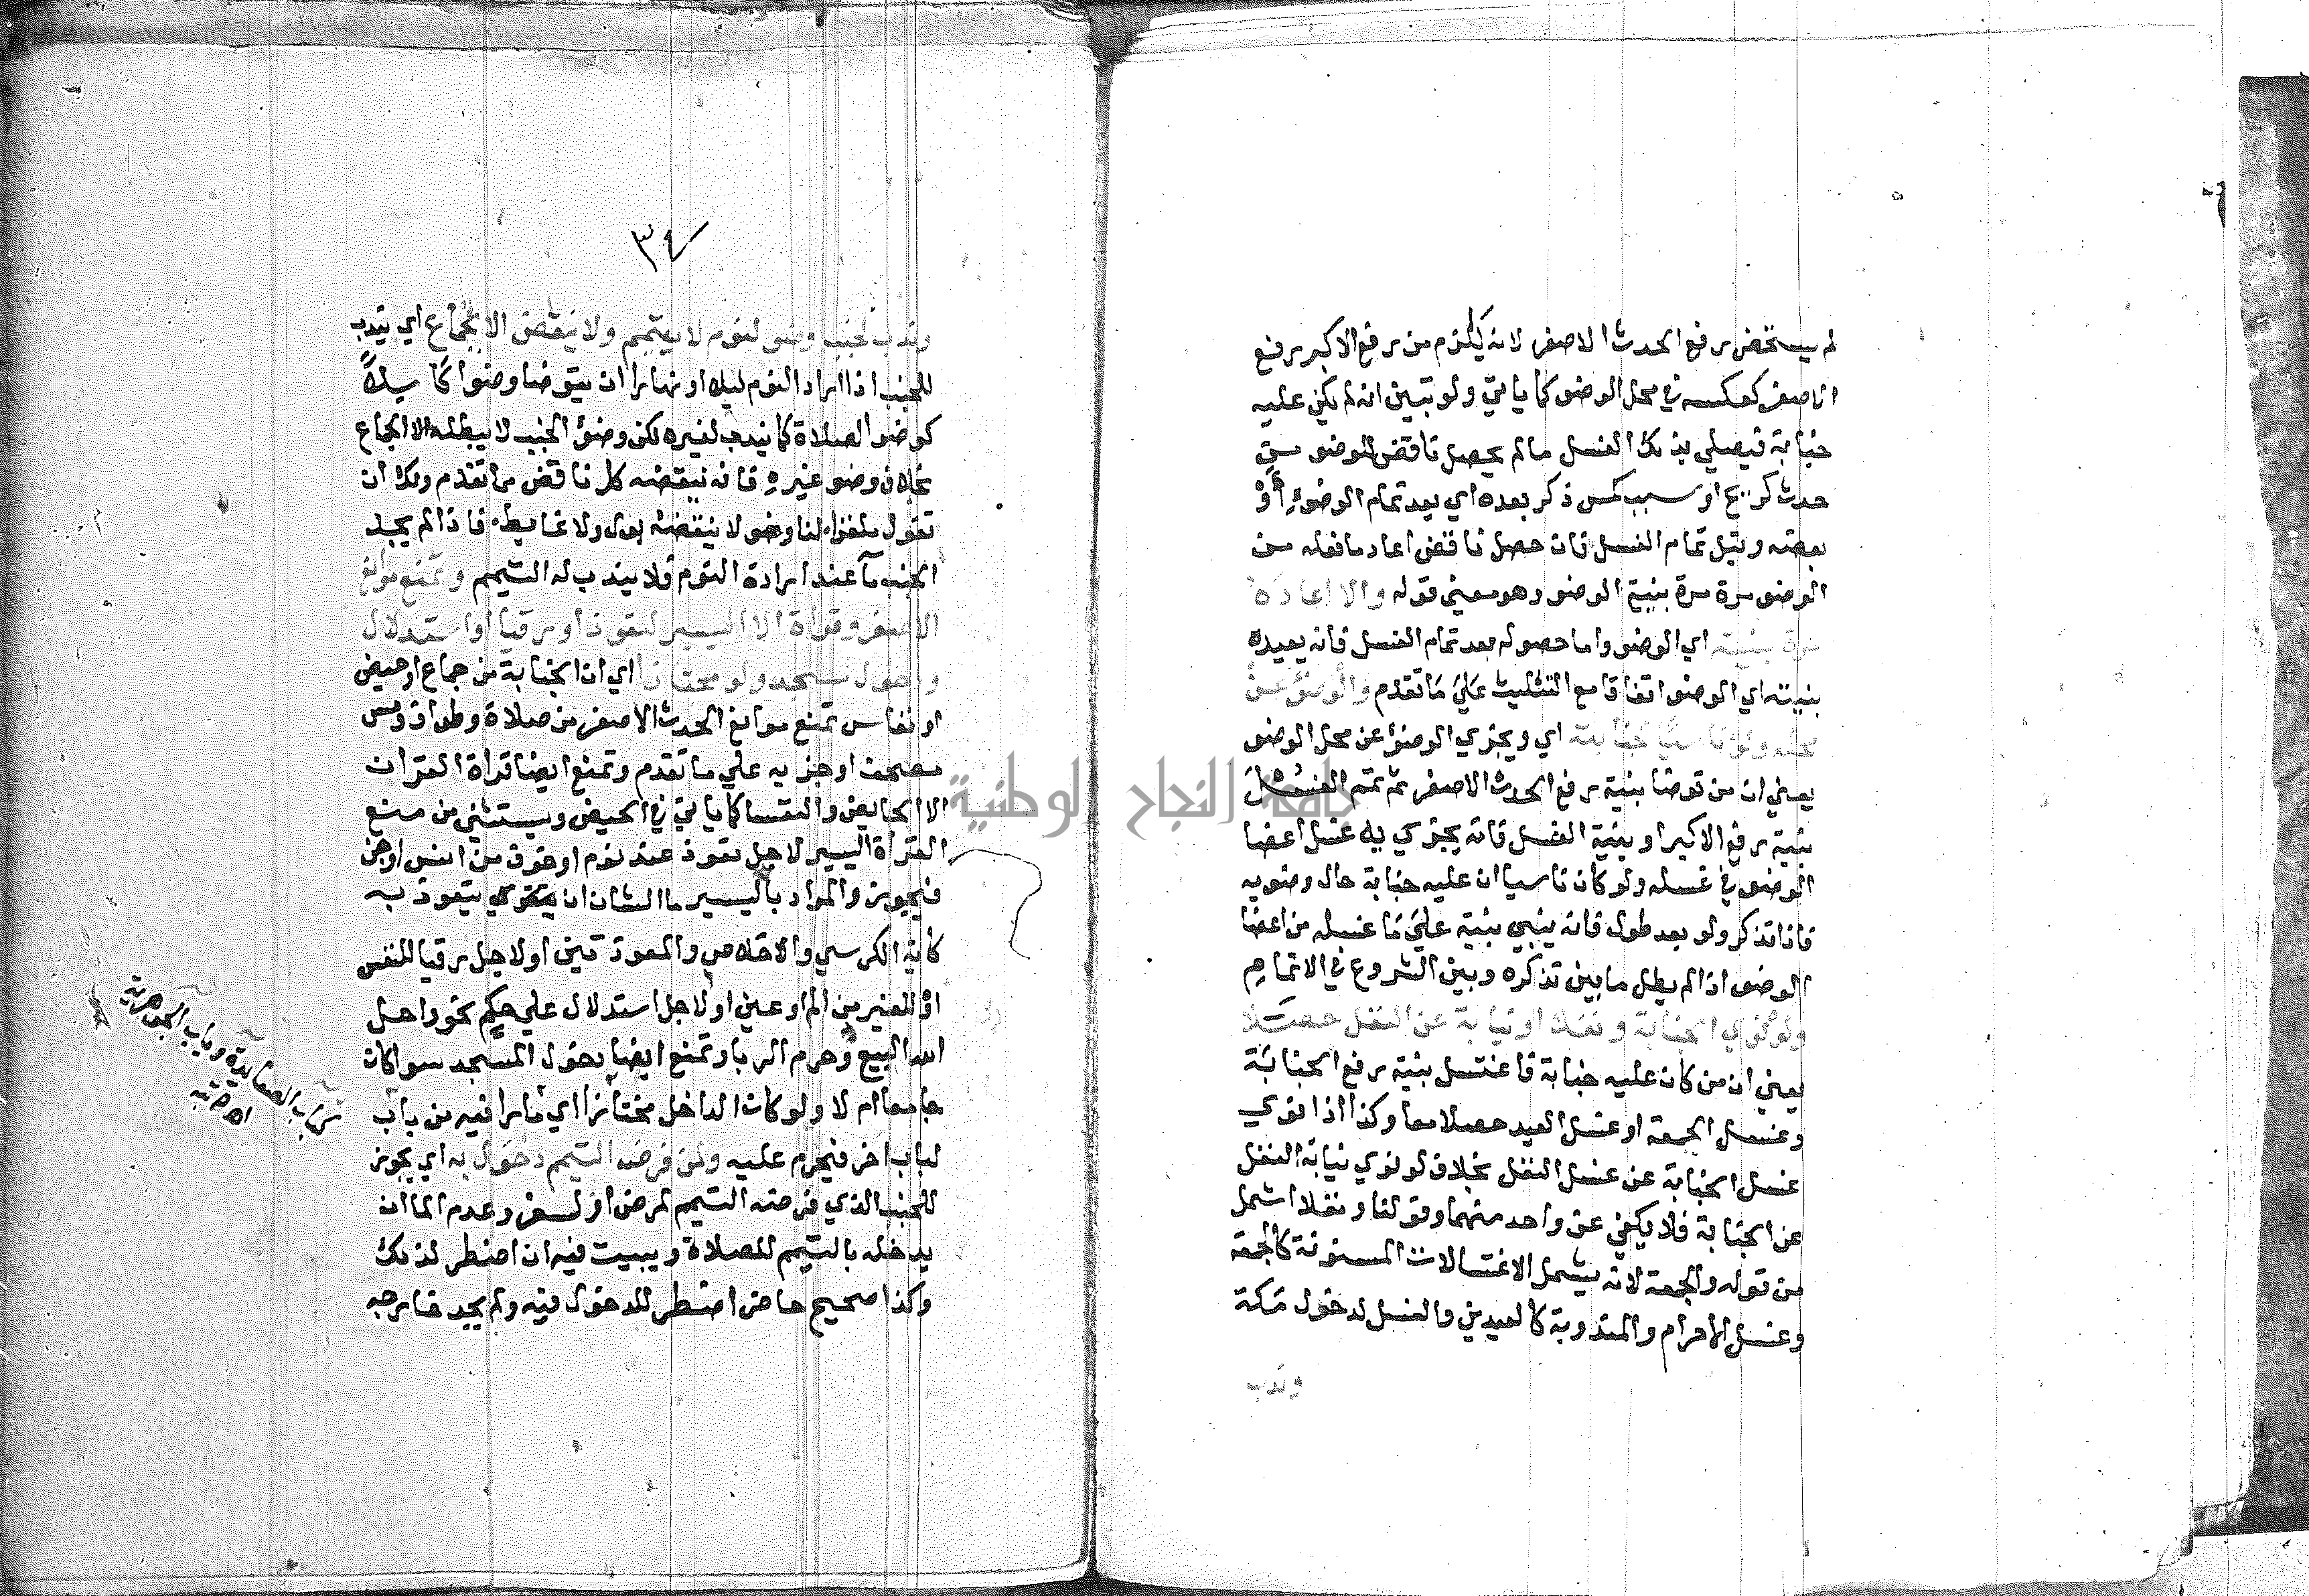 لم يستحضر رفع الحدث الاصغر لانه يلزم من رفع الاكبر رفع
الاصغر كعكسه في محل الوضو كما ياتي ولو تبين انه لم يكن عليه
جنابة فيصلي بذلك الغسل ما لم يحصل ناقض للوضو من
حدث كريح او سبب كمس ذكر بعده اي بعد تمام الوضوء أو
بعضه وقبل تمام الغسل فان حصل ناقض اعاد ما فعله من
الوضو مرة مرة بنية الوضو وهو معني قوله والا اعاده
مرة بنيته اي الوضو واما حصوله بعد تمام الغسل فانه يعيده
بنيته اي الوضو اتفاقا مع التثليث علي ما تقدم والوضؤ عن
محله ولو ناسيا لجنابته اي ويجزي الوضؤ عن محل الوضو
يعني ان من توضا بنية رفع الحدث الاصغر ثم تمم الغسل
بنية رفع الاكبر او بنية الغسل فانه يجزي به غسل اعضا
الوضو في غسله ولو كان ناسيا ان عليه جنابة حال وضويه
فاذا تذكر ولو بعد طول فانه يبني بنية علي ما غسله من اعضا
الوضو اذا لم يطل ما بين تذكره وبين الشروع في الاتمام
ولو نوي الجنابة ونفلا او نيابة عن النفل حصلا
يعني ان من كان عليه جنابة فاغتسل بنية رفع الجنابة
وغسل الجمعة او غسل العيد حصلا معا وكذا اذا نوي
غسل الجنابة عن غسل النفل بخلاف لو نوي نيابة النفل
عن الجنابة فلا يكفي عن واحد منهما وقولنا ونفلا اشمل
من قوله والجمعة لانه يشمل الاغتسالات المسنونة كالجمعة
وغسل الاحرام والمندوبة كالعيدين والغسل لدخول مكة
وندب
٣٤
وندب لجنب وضو لنوم لا تيمم ولا ينقض الا بجماع اي يندب
للجنب اذا اراد النوم ليلا او نهارا ان يتوضا وضوا كاملا
كوضو الصلاة كما يندب لغيره لكن وضؤ الجنب لا يبطله الا الجماع
بخلاف وضو غيره فانه ينقضه كل ناقض مما تقدم ولك ان
تقول ملغزا لنا وضو لا ينقضه بول ولا غايط فاذا لم يجد
الجنب ما عند ارادة النوم فلا يندب له التيمم وتمنع موانع
الاصغر وقراة الا اليسير لتعوذ او رقيا او استدلال
ودخول مسجد ولو مجتازا اي ان الجنابة من جماع او حيض
او نفاس تمنع موانع الحدث الاصغر من صلاة وطواف ومس
مصحف او جزيه علي ما تقدم وتمنع ايضا قراة القران
الا الحايض والنفسا كما ياتي في الحيض ويستثني من منع
القراة اليسير لاجل تعوذ عند نوم او خوف من انس او جن
فيجوز والمراد باليسير ما الشان ان يتعوذ به
كاية الكرسي والاخلاص والمعوذتين او لاجل رقيا للنفس
او للغير من الم او عين او لاجل استدلال علي حكم نحو واحل
الله البيع وحرم الربا وتمنع ايضا دخول المسجد سوا كان
جامعا ام لا ولو كان الداخل مجتازا اي مارا فيه من باب
لباب اخر فيحرم عليه ولمن فرضه التيمم دخول به اي يجوز
للجنب الذي فرضه التيمم لمرض او لسفر وعدم الما ان
يدخله بالتيمم للصلاة ويبيت فيه ان اضطر لذلك
وكذا صحيح حاضر اضطر للدخول فيه ولم يجد خارجه